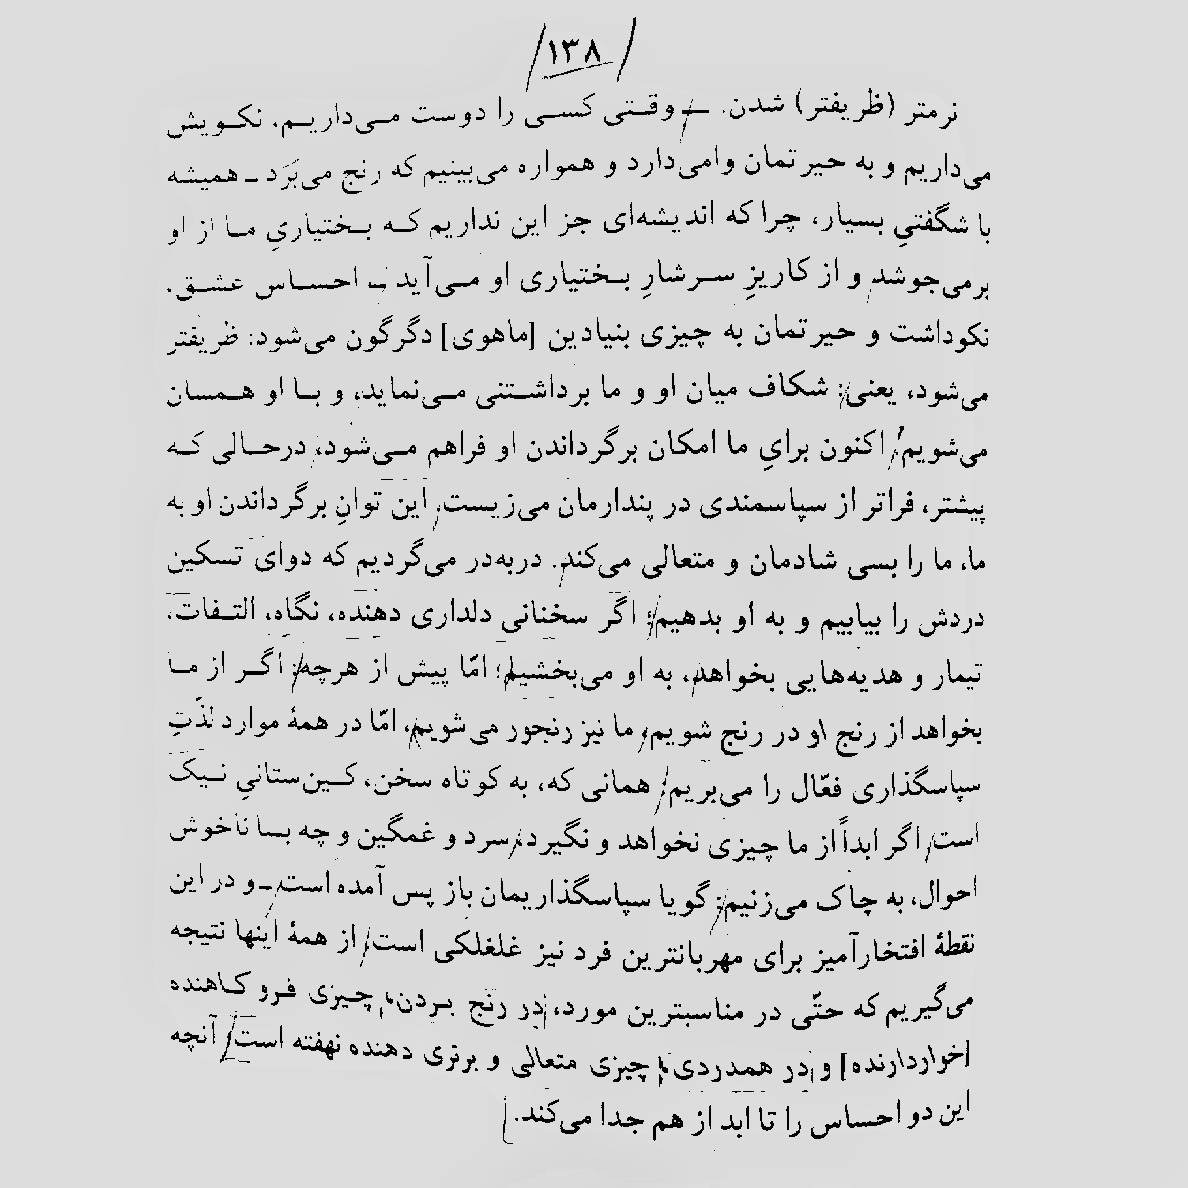 /۱۳۸/
نرمتر (ظریفتر) شدن. ـ وقتی کسی را دوست می‌داریم. نکویش
می‌داریم و به حیرتمان وامی‌دارد و همواره می‌بینیم که رنج می‌بَرَد ـ همیشه
با شگفتیِ بسیار، چرا که اندیشه‌ای جز این نداریم که بختیاریِ ما از او
برمی‌جوشد و از کاریزِ سرشارِ بختیاری او می‌آید ـ احساس عشق.
نکوداشت و حیرتمان به چیزی بنیادین [ماهوی] دگرگون می‌شود: ظریفتر
می‌شود، یعنی: شکاف میان او و ما برداشتنی می‌نماید، و با او همسان
می‌شویم. اکنون برایِ ما امکان برگرداندن او فراهم می‌شود، درحالی که
پیشتر، فراتر از سپاسمندی در پندارمان می‌زیست. این توانِ برگرداندن او به
ما، ما را بسی شادمان و متعالی می‌کند. دربه‌در می‌گردیم که دوای تسکین
دردش را بیابیم و به او بدهیم؛ اگر سخنانی دلداری دهنده، نگاه، التفات،
تیمار و هدیه‌هایی بخواهد، به او می‌بخشیم؛ امّا پیش از هرچه: اگر از ما
بخواهد از رنج او در رنج شویم، ما نیز رنجور می‌شویم، امّا در همهٔ موارد لذّتِ
سپاسگذاری فعّال را می‌بریم/ همانی که، به کوتاه سخن، کین‌ستانیِ نیک
است/ اگر ابداً از ما چیزی نخواهد و نگیرد، سرد و غمگین و چه بسا ناخوش
احوال، به چاک می‌زنیم: گویا سپاسگذاریمان باز پس آمده است ـ و در این
نقطهٔ افتخارآمیز برای مهربانترین فرد نیز غلغلکی است/ از همهٔ اینها نتیجه
می‌گیریم که حتّی در مناسبترین مورد، در رنج بردن، چیزی فرو کاهنده
[خواردارنده] و در همدردی، چیزی متعالی و برتری دهنده نهفته است/ آنچه
این دو احساس را تا ابد از هم جدا می‌کند.